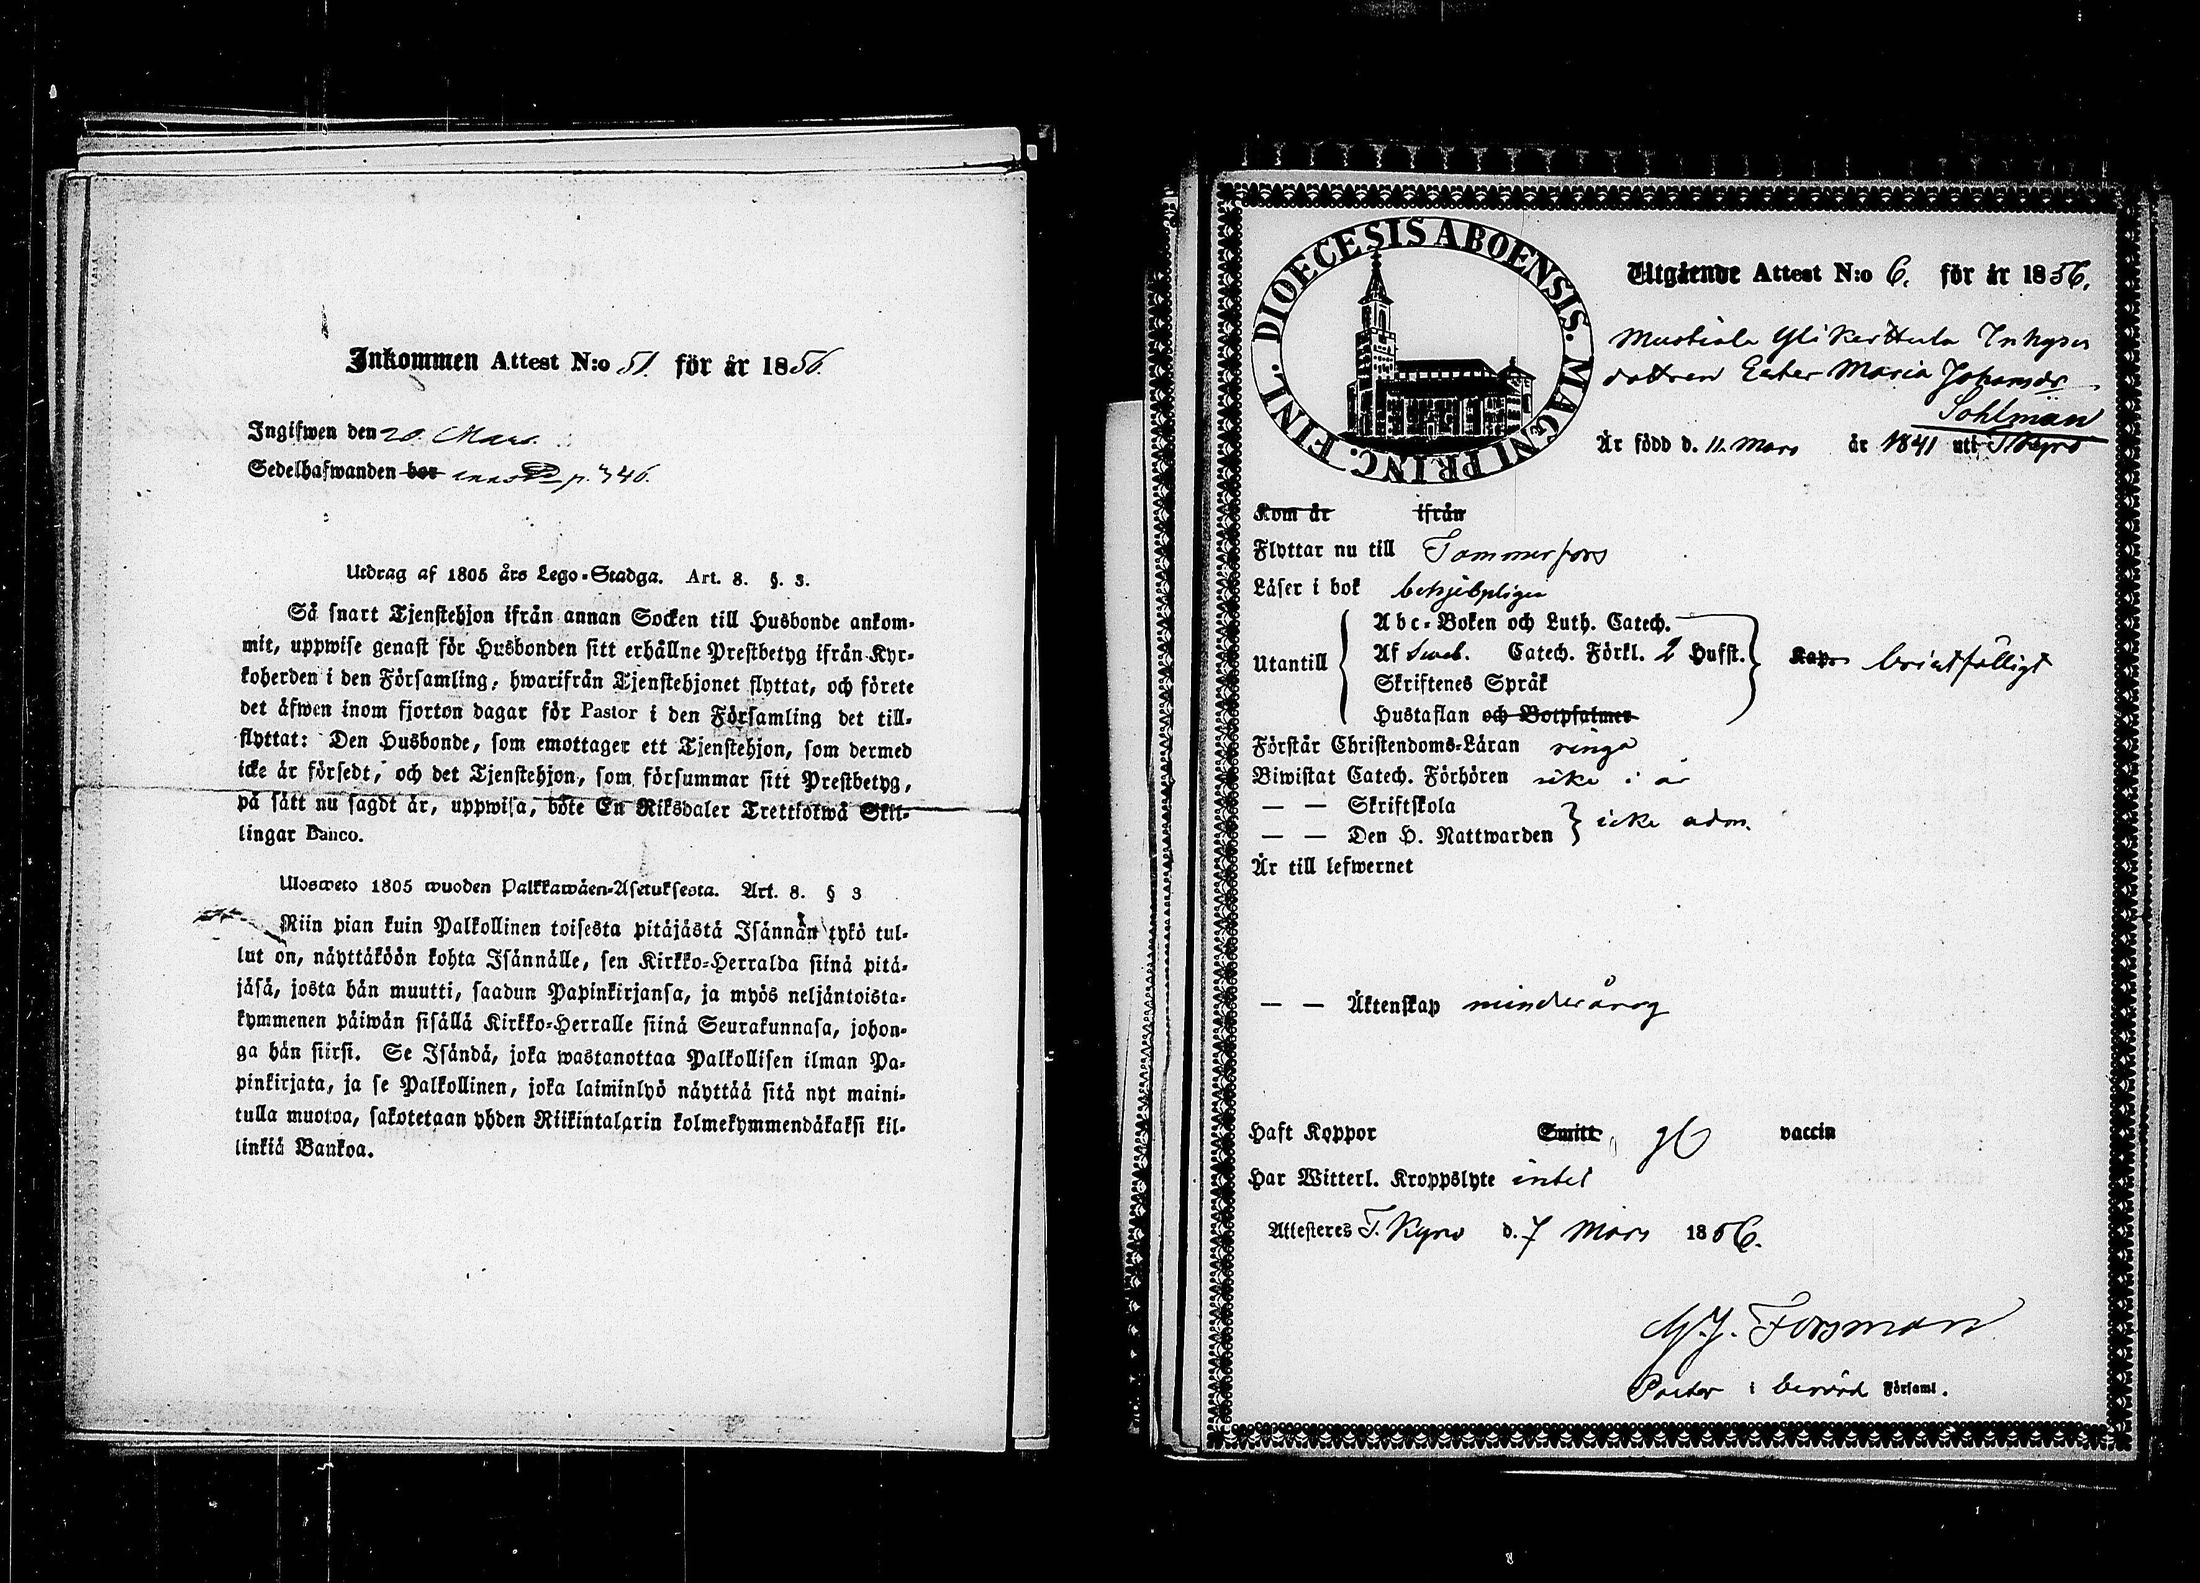 Inkommen Attest N:o 51. för år 1856.
Ingifwen den 20. Mars.
Sedelhafwanden bor p. 346.
Utdrag af 1805 års Lego-Stadga. Art. 8. §. 3.
Så snart Tjenstehjon ifrån annan Socken till Husbonde ankom-
mit, uppwise genast för Husbonden sitt erhållne Prestbetyg ifrån Kyr-
koherden i den Församling, hwarifrån Tjenstehjonet flyttat, och förete
det äfwen inom fjorton dagar för Pastor i den Församling det till-
flyttat: Den Husbonde, som emottager ett Tjenstehjon, som dermed
icke är försedt, och det Tjenstehjon, som försummar sitt Prestbetyg,
på sätt nu sagdt är, uppwisa, böte En Riksdaler Trettiotwå Skil-
lingar Banco.
Ulosweto 1805 wuoden Palkkawäen-Asetuksesta. Art. 8. § 3
Niin pian kuin Palkollinen toisesta pitäjästä Isännän tykö tul-
lut on, näyttäköön kohta Isännälle, sen Kirkko-Herralda siinä pitä-
jäsä, josta hän muutti, saadun Papinkirjansa, ja myös neljäntoista-
kymmenen päiwän sisällä Kirkko-Herralle siinä Seurakunnasa, johon-
ga hän siirsi. Se Isändä, joka wastanottaa Palkollisen ilman Pa-
pinkirjata, ja se Palkollinen, joka laiminlyö näyttää sitä nyt maini-
tulla muotoa, sakotetaan yhden Riikintalarin kolmekymmendäkaksi kil-
linkiä Bankoa.
DIOECESIS ABOENSIS. MAGNI PRINC. FINL.
Utgående Attest N:o 6. för år 1856.
Mustiala Ylikerttula Inhyses
dottren Ester Maria Johansdr
Sohlman
Är född d. 11. Mars år 1841 uti T Kyro
Kom år ifrån
Flyttar nu till Tammerfors
Läser i bok behjelpligen
Utantill
Abc-Boken och Luth. Catech.
Af Sweb. Catech. Förkl. 2 Hufst. Kap. bristfälligt
Skriftenes Språk
Hustaflan och Botpsalmer
Förstår Christendoms-Läran ringa
Biwistat Catech. Förhören icke i år
— — Skriftskola
— — Den H. Nattwarden icke adm.
Är till lefwernet
— — Äktenskap minderårig
Haft Koppor Smitt vaccin
Har Witterl. Kroppslyte intet
Attesteres T. Kyro d. 7 Mars 1856.
Forsman
Pastor i berörd Församl.